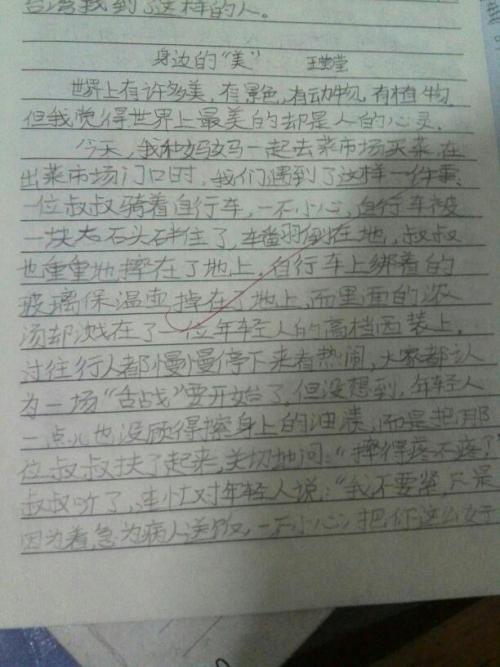 台湾找到了这样的人。
身边的“美” 王莹莹
世界上有许多美，有景色，有动物，有植物，
但我觉得世界上最美的却是人的心灵。
今天，我和妈妈一起去菜市场买菜，在
出菜市场门口时，我们遇到了这样一件事：
一位叔叔骑着自行车，一不小心，自行车被
一块大石头绊住了，车翻倒在地，叔叔
也重重地摔在了地上，自行车上绑着的
玻璃保温壶掉在了地上，而里面的浓
汤却溅在了一位年轻人的高档西装上。
过往行人都慢慢停下来看热闹，大家都认
为一场“舌战”要开始了，但没想到，年轻人
一点儿也没顾得擦身上的油渍，而是把那
位叔叔扶了起来，关切地问：“摔得疼不疼？”
叔叔听了，连忙对年轻人说：“我不要紧，只是
因为着急为病人送饭，一不小心，把你这么好